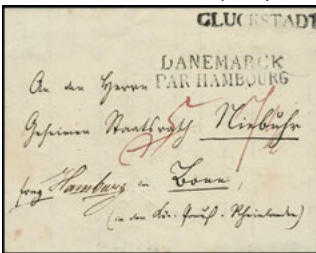 GLUCKSTADT
DANEMARCK
PAR HAMBOURG
An den Herrn
Geheimen Staatsrath Niebuhr
Hamburg in Bonn,
(in den Kön. Preuß. Rheinlanden)